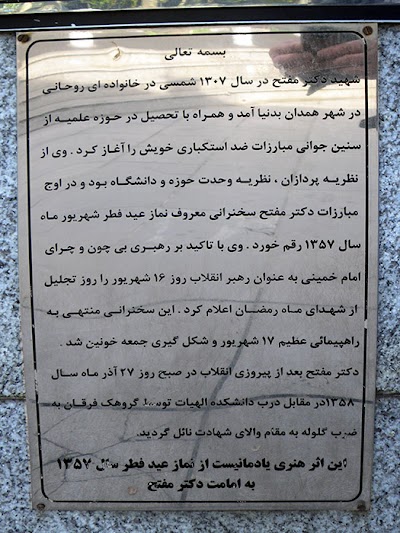 بسمه تعالی
شهید دکتر مفتح در سال ۱۳۰۷ شمسی در خانواده ای روحانی
در شهر همدان بدنیا آمد و همراه با تحصیل در حوزه علمیه از
سنین جوانی مبارزات ضد استکباری خویش را آغاز کرد . وی از
نظریه پردازان ، نظریه وحدت حوزه و دانشگاه بود و در اوج
مبارزات دکتر مفتح سخنرانی معروف نماز عید فطر شهریور ماه
سال ۱۳۵۷ رقم خورد . وی با تاکید بر رهبری بی چون و چرای
امام خمینی به عنوان رهبر انقلاب روز ۱۶ شهریور را روز تجلیل
از شهدای ماه رمضان اعلام کرد . این سخنرانی منتهی به
راهپیمائی عظیم ۱۷ شهریور و شکل گیری جمعه خونین شد .
دکتر مفتح بعد از پیروزی انقلاب در صبح روز ۲۷ آذر ماه سال
۱۳۵۸در مقابل درب دانشکده الهیات توسط گروهک فرقان به
ضرب گلوله به مقام والای شهادت نائل گردید.
این اثر هنری یادمانیست از نماز عید فطر سال ۱۳۵۷
به امامت دکتر مفتح